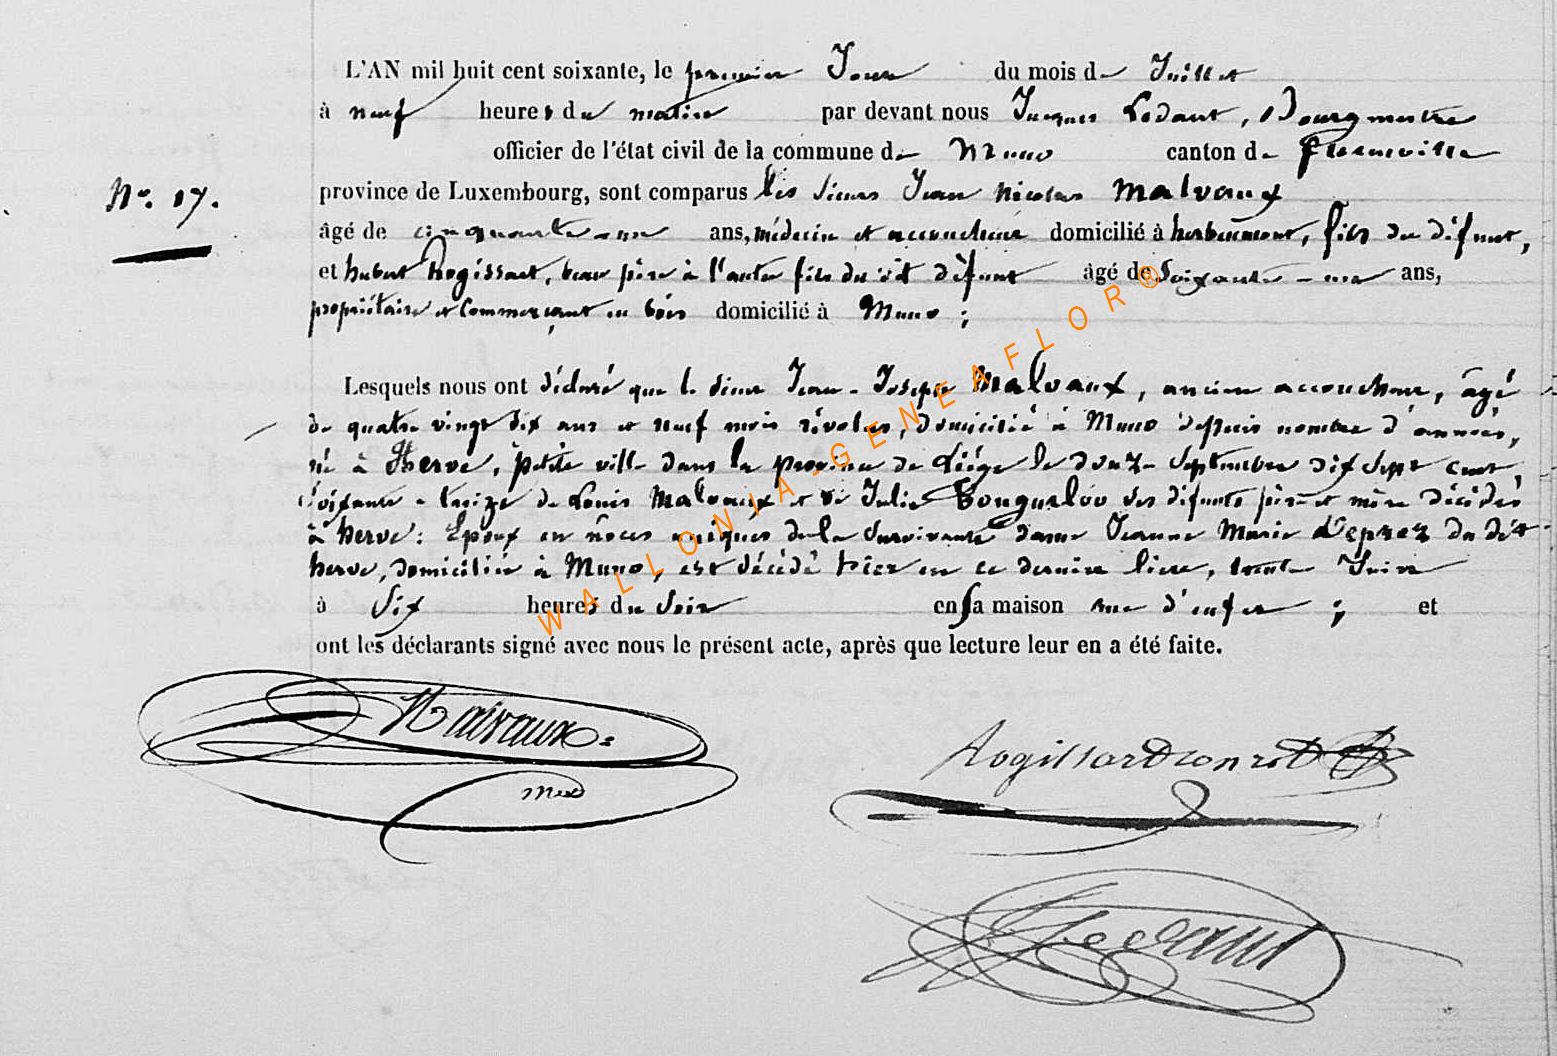 L'AN mil huit cent soixante, le premier Jour du mois de Juillet
à neuf heures du matin par devant nous Jacques Ledant, Bourgmestre
officier de l'état civil de la commune de Muno canton de florenville
N°. 17.
province de Luxembourg, sont comparus les sieurs Jean Nicolas Malvaux
âgé de cinquante-un ans, médecin et accoucheur domicilié à herbeumont, fils du défunt,
et hubert Rogissart, beau père à l'autre fils du dit défunt âgé de soixante-un ans,
propriétaire et commerçant en bois domicilié à Muno ;
Lesquels nous ont déclaré que le sieur Jean-Joseph Malvaux, ancien accoucheur, âgé
de quatre vingt dix ans et neuf mois révolus, domicilié à Muno depuis nombre d'années,
né à Herve, petite ville dans la province de Liège le douze Septembre dix sept cent
soixante-treize de Louis Malvaux et de Julie des défunts père et mère décédés
à herve : Epoux en nôces uniques de la survivante dame Jeanne Marie Deprez du dit
herve, domiciliée à Muno, est décédé hier en ce dernier lieu, trente Juin
à Six heures du Soir en sa maison rue d'enfer ; et
ont les déclarants signé avec nous le présent acte, après que lecture leur en a été faite.
Malvaux
Rogissart
Ledant
WALLONIA-GENEAFLOR®